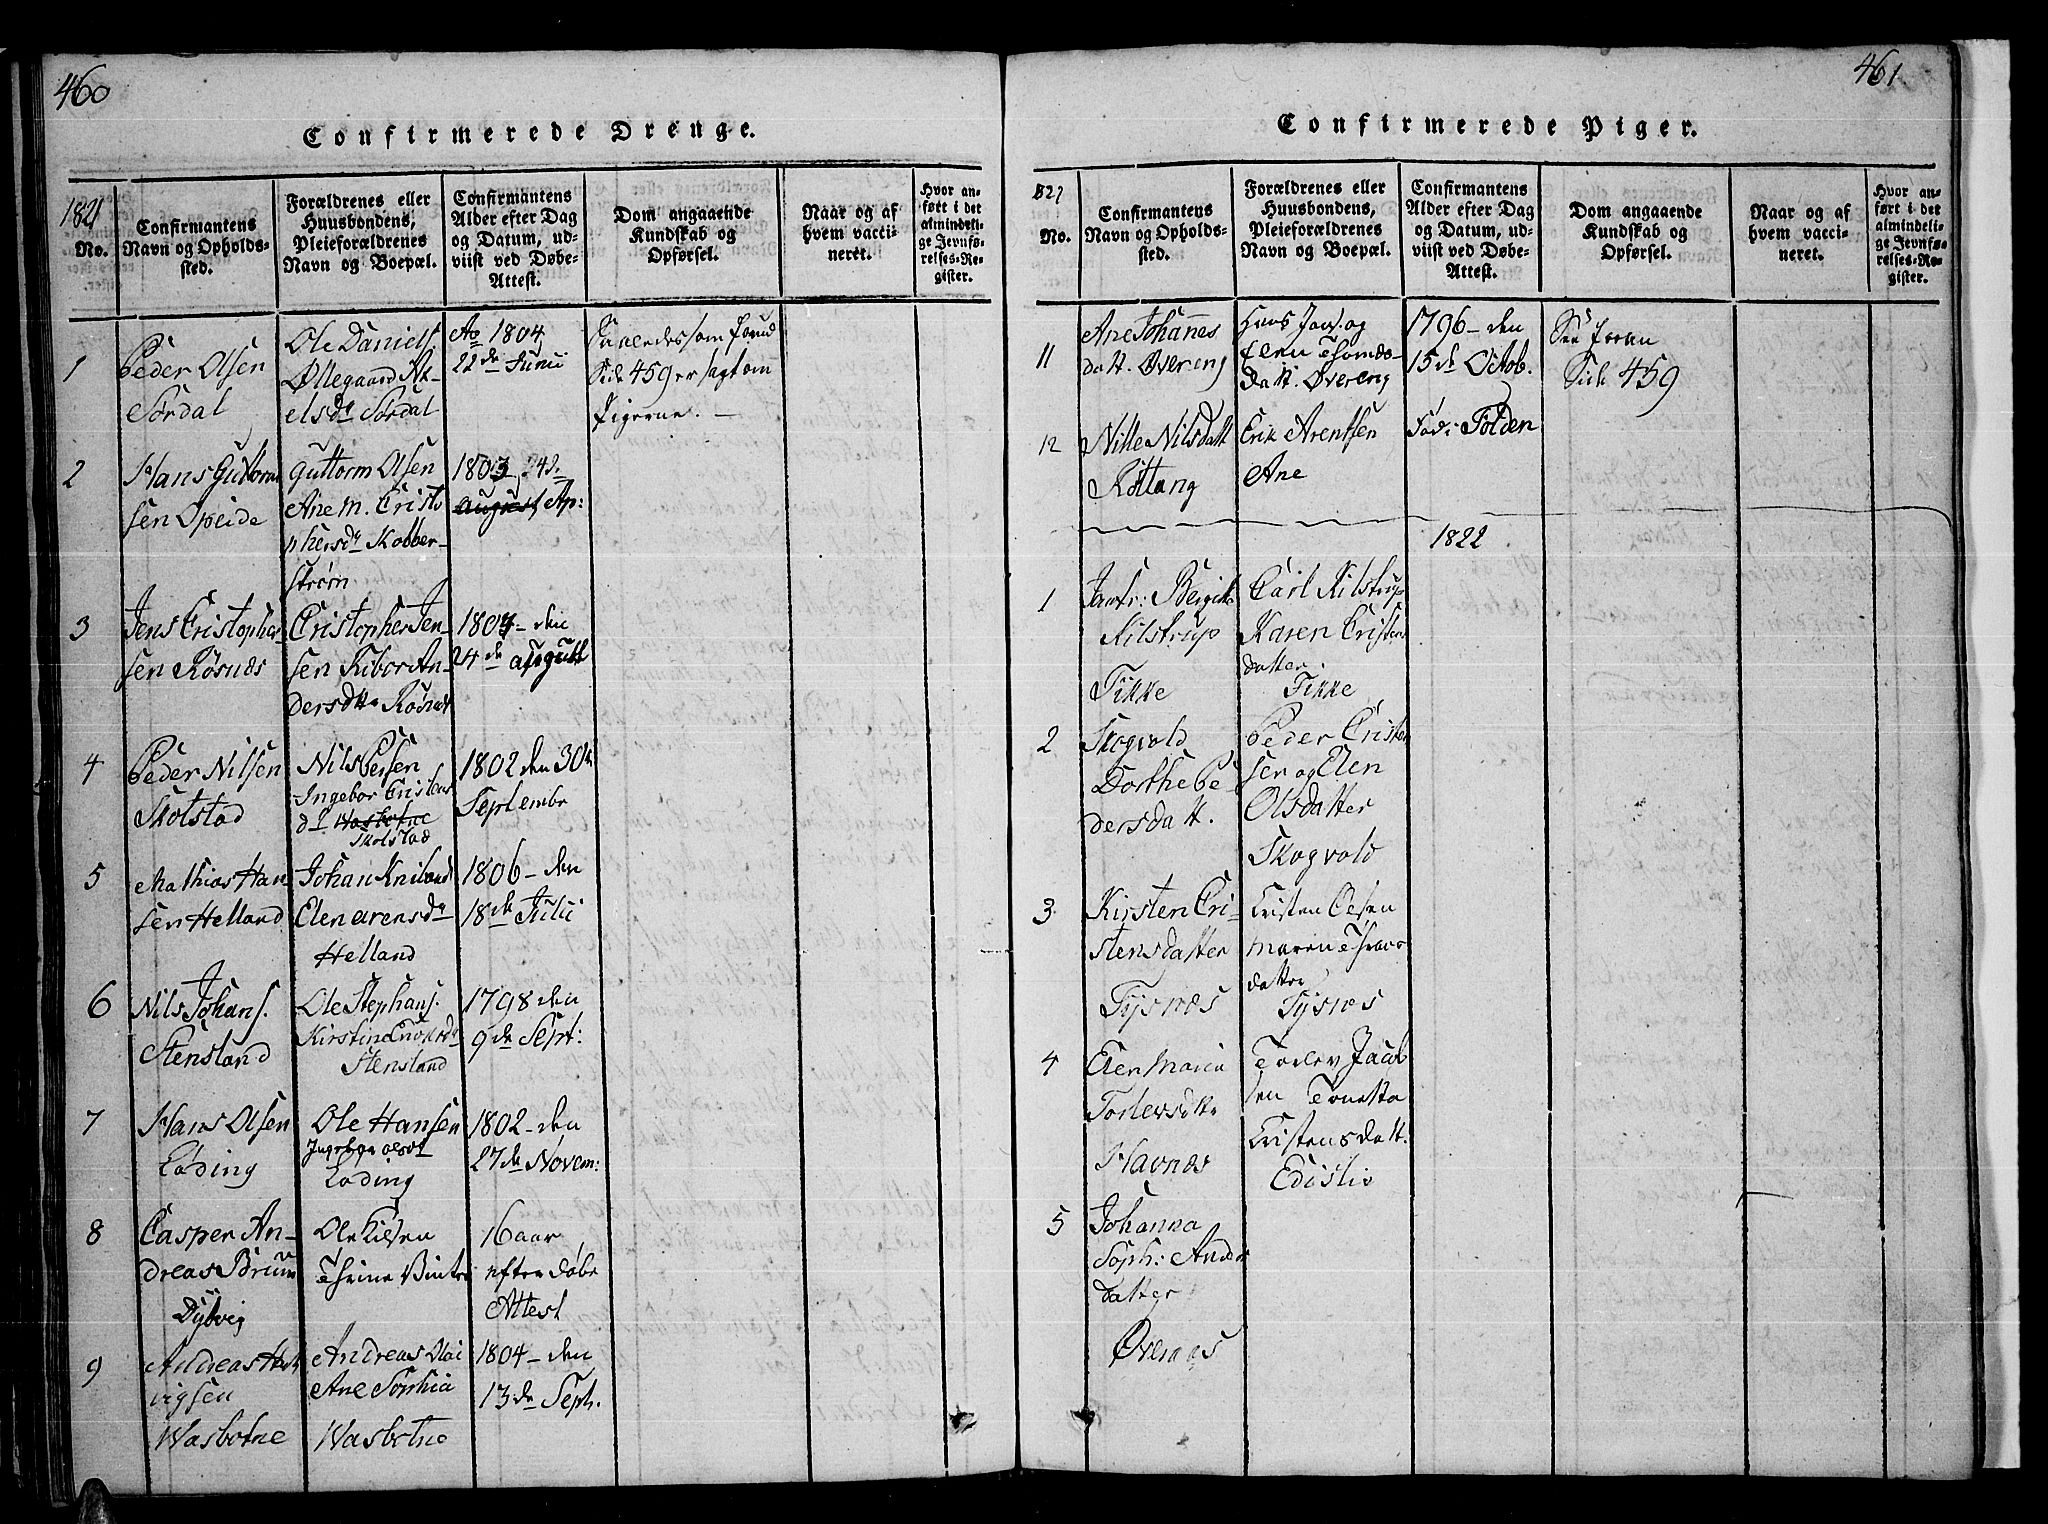 460
Confirmerede Drenge.
1821
No.
Confirmantens
Navn og Opholds-
sted.
Forældrenes eller
Huusbondens,
Pleieforældrenes
Navn og Boepæl.
Confirmantens
Alder efter Dag
og Datum, ud-
viist ved Døbe-
Attest.
Dom angaaende
Kundskab og
Opførsel.
Naar og af
hvem vacci-
neret.
Hvor an-
ført i det
almindeli-
ge Jevnfø-
relses-Re-
gister.
1
Peder Olsen
Sørdal
Ole Daniels.
Øllegaard Ak-
elsdr Sørdal
Ao 1804
22de Junii
som
Side 459 er sagt om
Pigerne. —
2
Hans Guttorm
sen Opeide
Guttorm Olsen
Ane M. Cristo
phersdr Kobber-
strøm
1803 24de
August Ap:
3
Jens Cristopher
sen Røsnæs
Cristopher Jen-
sen An-
dersdtr Røsnæs
1804 - den
24de August
4
Peder Nilsen
Skotstad
Nils Persen
Ingebor Cristens
dr Wasbotne
Skotstad
1802 den 30te
Septembr
5
Mathias Han
sen Helland
Johan
Elen Arensdr
Helland
1806 - den
18de Julii
6
Nils Johans.
Stensland
Ole Stephans.
Kirstine
Stensland
1798 den
9de Sept:
7
Hans Olsen
Løding
Ole Hansen
Ingebor Olsdr
Løding
1802 - den
27de Novem:
8
Casper An-
dreas Bruun
Dybvig
Ole
Thrine
16 aar
efter døbe
Attest
9
Andreas
Wasbotne
Andreas
Ane Sophia
Wasbotne
1804 - den
13de Septr.
461
Confirmerede Piger.
1821
No.
Confirmantens
Navn og Opholds-
sted.
Forældrenes eller
Huusbondens,
Pleieforældrenes
Navn og Boepæl.
Confirmantens
Alder efter Dag
og Datum, ud-
viist ved Døbe-
Attest.
Dom angaaende
Kundskab og
Opførsel.
Naar og af
hvem vacci-
neret.
Hvor an-
ført i det
almindeli-
ge Jevnfø-
relses-Re-
gister.
11
Ane Johannes
datt. Øvereng
Hans Jons. og
Elen Thomæs-
datt. Øvereng
1796 - den
15de Octob.
See foran
Side 459
12
Nille Nilsdatt
Rottang
Erik Arentsen
Ane
Fød i Folden
1822
1
Jomfr: Bergitte
Kilstrup
Fikke
Carl Kilstrup
Karen Cristens
datter
Fikke
2
Skogvold
Dorthe Pe-
dersdatt.
Peder Cristen
sen og Elen
Olsdatter
Skogvold
3
Kirsten Cri-
stensdatter
Tysnæs
Cristen Olsen
Maren
datter
Tysnæs
4
Elen Maria
Torlevsdtr
Havnæs
Torlev Jacob
sen Tonetta
Cristensdatt.
5
Johanna
Soph: Anders
datter